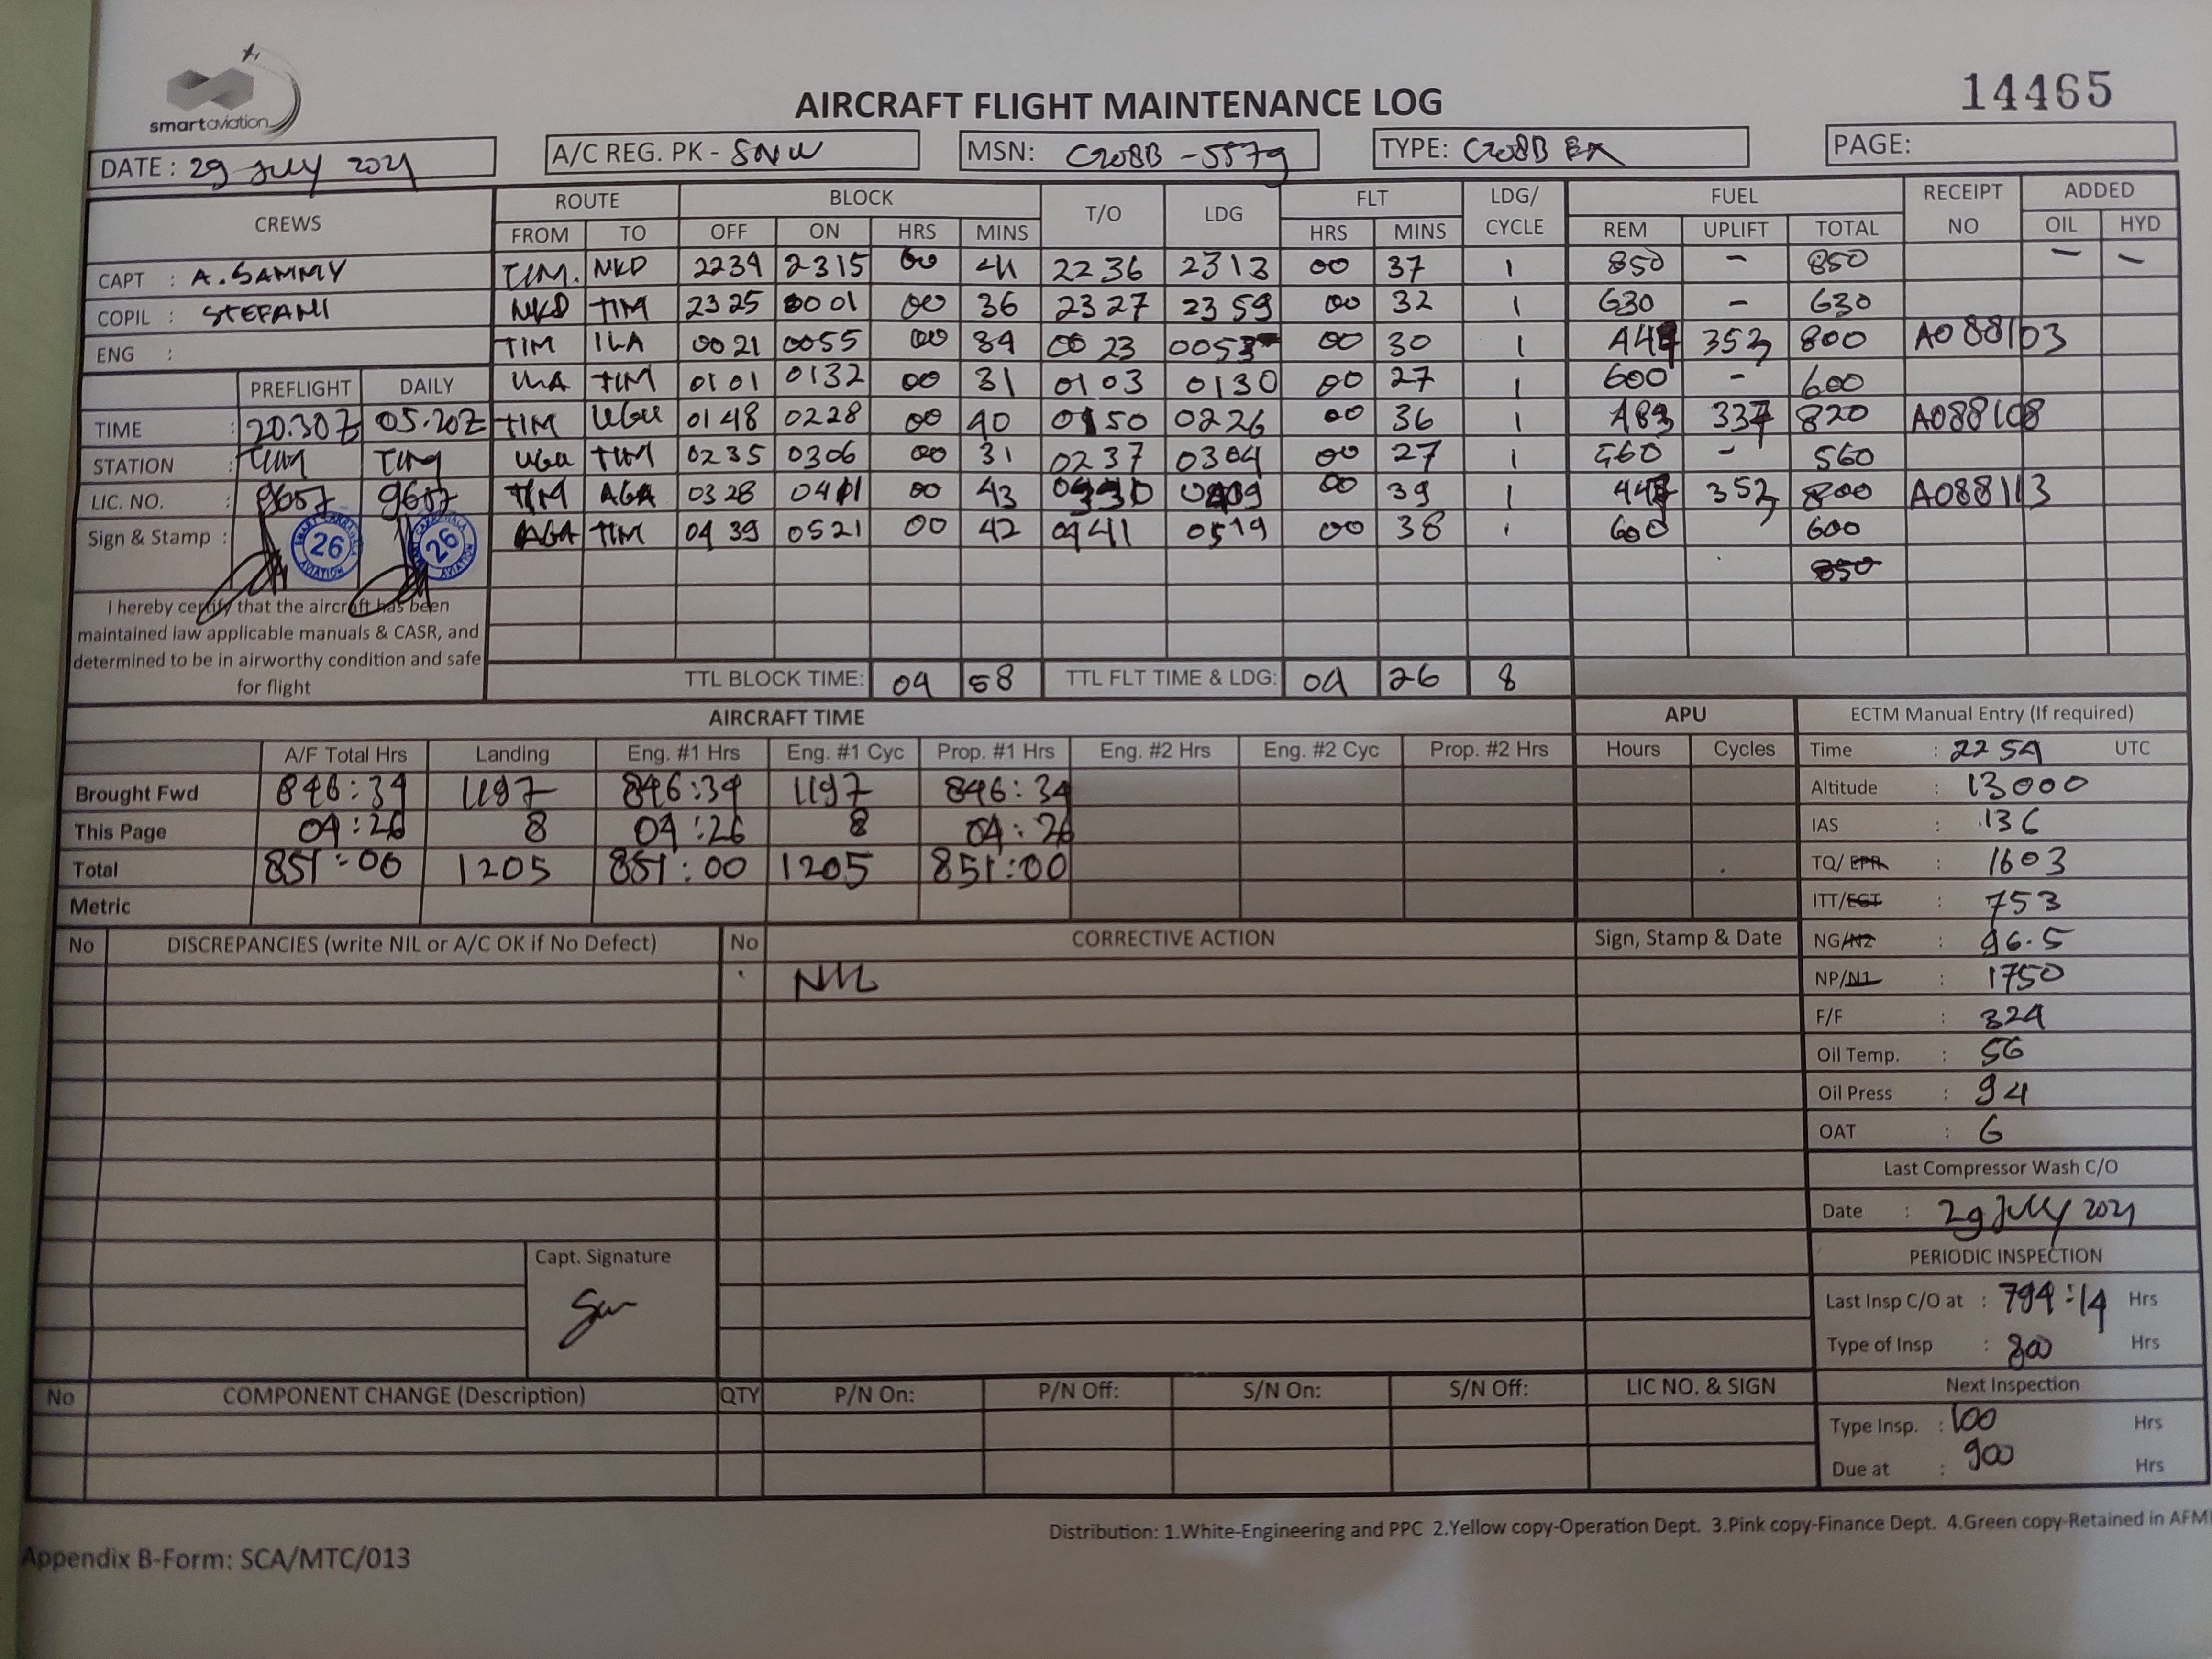 smartaviation
AIRCRAFT FLIGHT MAINTENANCE LOG
14465
DATE : 29 July 2021
A/C REG. PK - SNW
MSN: C208B - 5579
TYPE: C208B EX
PAGE:
CREWS
ROUTE BLOCK T/O LDG FLT LDG/ CYCLE FUEL RECEIPT NO ADDED
FROM TO OFF ON HRS MINS HRS MINS REM UPLIFT TOTAL OIL HYD
CAPT : A. SAMMY
COPIL : STEFANI
ENG :
TIM. NKD 2234 2315 00 41 2236 2313 00 37 1 850 - 850 - -
NKD TIM 2325 0001 00 36 2327 2359 00 32 1 630 - 630
TIM ILA 0021 0055 00 34 0023 0053 00 30 1 447 353 800 A088103
ILA TIM 0101 0132 00 31 0103 0130 00 27 1 600 - 600
TIM UGU 0148 0228 00 40 0150 0226 00 36 1 483 337 820 A088108
UGU TIM 0235 0306 00 31 0237 0304 00 27 1 560 - 560
TIM AGA 0328 0411 00 43 0330 0409 00 39 1 448 352 800 A088113
AGA TIM 0439 0521 00 42 0441 0519 00 38 1 600 600
850
PREFLIGHT DAILY
TIME : 20.30Z 05.20Z
STATION : TIM TIM
LIC. NO. : 9657 9657
Sign & Stamp :
26 AVIATION
26 AVIATION
I hereby certify that the aircraft has been
maintained iaw applicable manuals & CASR, and
determined to be in airworthy condition and safe
for flight
TTL BLOCK TIME: 04 58 TTL FLT TIME & LDG: 04 26 8
AIRCRAFT TIME
APU
A/F Total Hrs Landing Eng. #1 Hrs Eng. #1 Cyc Prop. #1 Hrs Eng. #2 Hrs Eng. #2 Cyc Prop. #2 Hrs Hours Cycles
Brought Fwd 846:34 1197 846:34 1197 846:34
This Page 04:26 8 04:26 8 04:26
Total 851:00 1205 851:00 1205 851:00
Metric
ECTM Manual Entry (If required)
Time : 2254 UTC
Altitude : 13000
IAS : 136
TQ/ EPR : 1603
ITT/EGT : 753
NG/N2 : 96.5
NP/N1 : 1750
F/F : 324
Oil Temp. : 56
Oil Press : 94
OAT : 6
Last Compressor Wash C/O
Date : 29 July 2021
PERIODIC INSPECTION
Last Insp C/O at : 794:14 Hrs
Type of Insp : 800 Hrs
Next Inspection
Type Insp. : 100 Hrs
Due at : 900 Hrs
No DISCREPANCIES (write NIL or A/C OK if No Defect) No CORRECTIVE ACTION Sign, Stamp & Date
NIL
Capt. Signature
No COMPONENT CHANGE (Description) QTY P/N On: P/N Off: S/N On: S/N Off: LIC NO. & SIGN
Distribution: 1.White-Engineering and PPC 2.Yellow copy-Operation Dept. 3.Pink copy-Finance Dept. 4.Green copy-Retained in AFM
Appendix B-Form: SCA/MTC/013